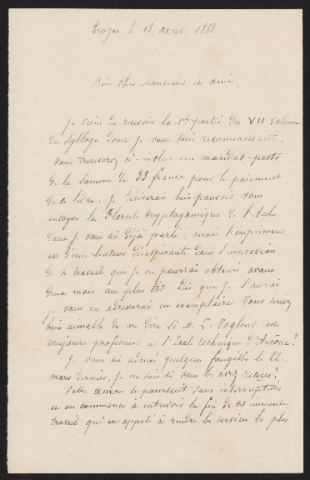 Troyes le 18 avril 1888.
Bien cher Monsieur et Ami,
Je viens de recevoir la 1re partie du VII volume
du Sylloge dont je vous suis reconnaissant.
Vous trouverez ci-inclus un mandat-poste
de la somme de 33 francs pour le paiement
de ce livre. Je désirerais bien pouvoir vous
envoyer la Florule cryptogamique de l'Aube
dont je vous ai déjà parlé, mais l'imprimeur
est d'une lenteur désespérante dans l'impression
de ce travail que je ne pourrai obtenir avant
deux mois au plus tôt. Dès que je l'aurai
je vous en adresserai un exemplaire. Vous seriez
bien aimable de me dire si M. P. Voglino est
toujours professeur à l'Ecole technique d'Ancône?
Je vous ai adressé quelques fongilles le 22
mars dernier, je ne sais si vous les avez reçues?
Votre œuvre se poursuit sans interruption
et on commence à entrevoir la fin de cet immense
travail qui est appelé à rendre les services les plus